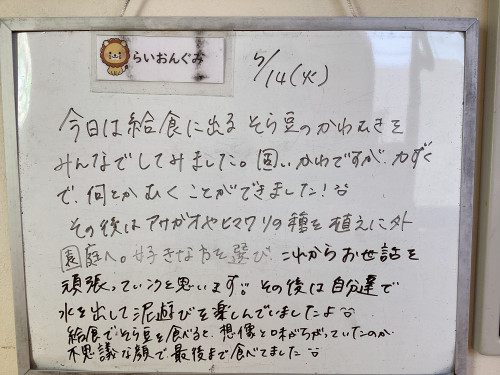 らいおんぐみ
5/14(火)
今日は給食に出る そら豆のかわむきを
みんなでしてみました。固いかわですが、力ずく
で、何とか むく ことができました!
その後は アサガオや ヒマワリの 種を 植えに 外
園庭へ。好きな方を選び、これから お世話を
頑張っていこうと思います。その後は 自分達で
水を出して 泥遊びを楽しんでいましたよ
給食で そら豆を食べると、想像と味がちがっていたのか
不思議な顔で 最後まで 食べてました